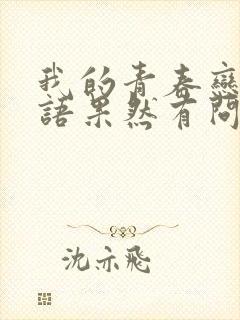 我的青春戀
語果然有問
沈亦飛